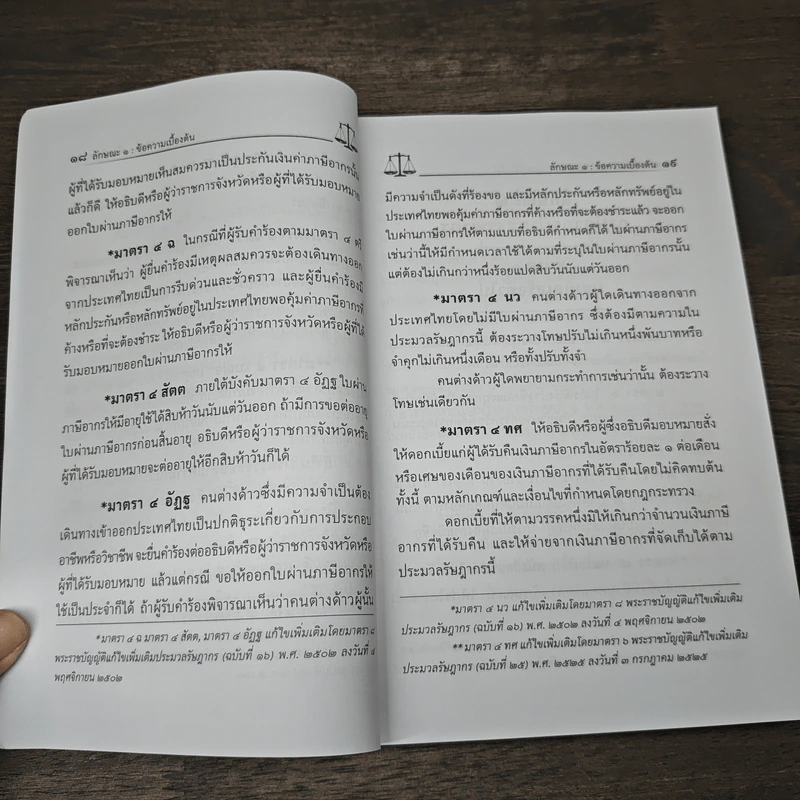 ๑๘ ลักษณะ ๑ : ข้อความเบื้องต้น
ผู้ที่ได้รับมอบหมายเห็นสมควรมาเป็นประกันเงินค่าภาษีอากรนั้น
แล้วก็ดี ให้อธิบดีหรือผู้ว่าราชการจังหวัดหรือผู้ที่ได้รับมอบหมาย
ออกใบผ่านภาษีอากรให้
*มาตรา ๔ ฉ ในกรณีที่ผู้รับคำร้องตามมาตรา ๔ ตรี
พิจารณาเห็นว่า ผู้ยื่นคำร้องมีเหตุผลสมควรจะต้องเดินทางออก
จากประเทศไทยเป็นการรีบด่วนและชั่วคราว และผู้ยื่นคำร้องมี
หลักประกันหรือหลักทรัพย์อยู่ในประเทศไทยพอคุ้มค่าภาษีอากรที่
ค้างหรือที่จะต้องชำระ ให้อธิบดีหรือผู้ว่าราชการจังหวัดหรือผู้ที่ได้
รับมอบหมายออกใบผ่านภาษีอากรให้
*มาตรา ๔ สัตต ภายใต้บังคับมาตรา ๔ อัฏฐ ใบผ่าน
ภาษีอากรให้มีอายุใช้ได้สิบห้าวันนับแต่วันออก ถ้ามีการขอต่ออายุ
ใบผ่านภาษีอากรก่อนสิ้นอายุ อธิบดีหรือผู้ว่าราชการจังหวัดหรือ
ผู้ที่ได้รับมอบหมายจะต่ออายุให้อีกสิบห้าวันก็ได้
*มาตรา ๔ อัฏฐ คนต่างด้าวซึ่งมีความจำเป็นต้อง
เดินทางเข้าออกประเทศไทยเป็นปกติธุระเกี่ยวกับการประกอบ
อาชีพหรือวิชาชีพ จะยื่นคำร้องต่ออธิบดีหรือผู้ว่าราชการจังหวัดหรือ
ผู้ที่ได้รับมอบหมาย แล้วแต่กรณี ขอให้ออกใบผ่านภาษีอากรให้
ใช้เป็นประจำก็ได้ ถ้าผู้รับคำร้องพิจารณาเห็นว่าคนต่างด้าวผู้นั้น
*มาตรา ๔ ฉ มาตรา ๔ สัตต, มาตรา ๔ อัฏฐ แก้ไขเพิ่มเติมโดยมาตรา ๘
พระราชบัญญัติแก้ไขเพิ่มเติมประมวลรัษฎากร (ฉบับที่ ๑๖) พ.ศ. ๒๕๐๒ ลงวันที่ ๔
พฤศจิกายน ๒๕๐๒
ลักษณะ ๑ : ข้อความเบื้องต้น ๑๙
มีความจำเป็นดังที่ร้องขอ และมีหลักประกันหรือหลักทรัพย์อยู่ใน
ประเทศไทยพอคุ้มค่าภาษีอากรที่ค้างหรือที่จะต้องชำระแล้ว จะออก
ใบผ่านภาษีอากรให้ตามแบบที่อธิบดีกำหนดก็ได้ ใบผ่านภาษีอากร
เช่นว่านี้ให้มีกำหนดเวลาใช้ได้ตามที่ระบุในใบผ่านภาษีอากรนั้น
แต่ต้องไม่เกินกว่าหนึ่งร้อยแปดสิบวันนับแต่วันออก
*มาตรา ๔ นว คนต่างด้าวผู้ใดเดินทางออกจาก
ประเทศไทยโดยไม่มีใบผ่านภาษีอากร ซึ่งต้องมีตามความใน
ประมวลรัษฎากรนี้ ต้องระวางโทษปรับไม่เกินหนึ่งพันบาทหรือ
จำคุกไม่เกินหนึ่งเดือน หรือทั้งปรับทั้งจำ
คนต่างด้าวผู้ใดพยายามกระทำการเช่นว่านั้น ต้องระวาง
โทษเช่นเดียวกัน
*มาตรา ๔ ทศ ให้อธิบดีหรือผู้ซึ่งอธิบดีมอบหมายสั่ง
ให้ดอกเบี้ยแก่ผู้ได้รับคืนเงินภาษีอากรในอัตราร้อยละ ๑ ต่อเดือน
หรือเศษของเดือนของเงินภาษีอากรที่ได้รับคืนโดยไม่คิดทบต้น
ทั้งนี้ ตามหลักเกณฑ์และเงื่อนไขที่กำหนดโดยกฎกระทรวง
ดอกเบี้ยที่ให้ตามวรรคหนึ่งมิให้เกินกว่าจำนวนเงินภาษี
อากรที่ได้รับคืน และให้จ่ายจากเงินภาษีอากรที่จัดเก็บได้ตาม
ประมวลรัษฎากรนี้
*มาตรา ๔ นว แก้ไขเพิ่มเติมโดยมาตรา ๘ พระราชบัญญัติแก้ไขเพิ่มเติม
ประมวลรัษฎากร (ฉบับที่ ๑๖) พ.ศ. ๒๕๐๒ ลงวันที่ ๔ พฤศจิกายน ๒๕๐๒
**มาตรา ๔ ทศ แก้ไขเพิ่มเติมโดยมาตรา ๖ พระราชบัญญัติแก้ไขเพิ่มเติม
ประมวลรัษฎากร (ฉบับที่ ๒๕) พ.ศ. ๒๕๒๕ ลงวันที่ ๓ กรกฎาคม ๒๕๒๕